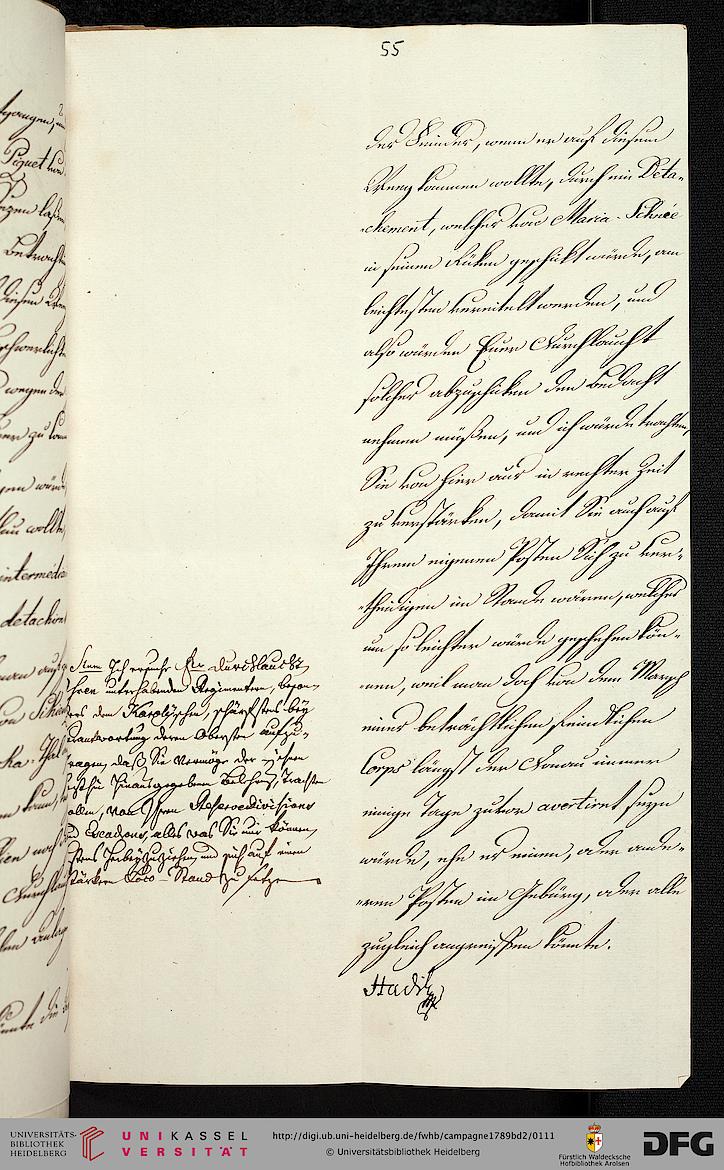 55
des Feindes, wenn er auf diesem
Weeg kommen wollte, durch ein Deta-
chement, welches von Maria-Schnée
in seinen Rüken geschikt würde, am
leichtesten vereitelt werden, und
also würden Euer Durchlaucht
solches abzuschiken den Bedacht
nehmen müßen, und ich würde trachten,
Sie von hier aus in rechter Zeit
zu verstärken, damit Sie auch auf
Ihrem eigenen Posten Sich zu ver-
theidigen im Stande wären, welches
um so leichter würde geschehen kön-
nen, weil man doch von dem Marsch
eines beträchtlichen feindlichen
Corps längst der Donau immer
einige Tage zuvor avertiret seyn
würde, ehe es einen, oder ande-
ren Posten im Gebürg, oder alle
zugleich angreiffen könnte.
Hadik
Ich ersuche Durchlaucht,
Ihren unterhabenden Regimentern, beson-
ders dem Karolyschen, schärfstens bey
Verantwortung deren Obersten aufzu-
tragen, daß Sie vermöge der
hinausgegebenen Befehen, trachten
sollen, von Ihren Reservedivisions
und Escadrons, alles was Sie nur können,
herbeyzuziehen und sich auf einen
stärkern Loco-Stand zu setzen
Piquet
detachir
UNIVERSITÄTS-
BIBLIOTHEK
HEIDELBERG
UNIKASSEL
VERSITÄT
http://digi.ub.uni-heidelberg.de/fwhb/campagne1789bd2/0111
© Universitätsbibliothek Heidelberg
Fürstlich Waldecksche
Hofbibliothek Arolsen
DFG